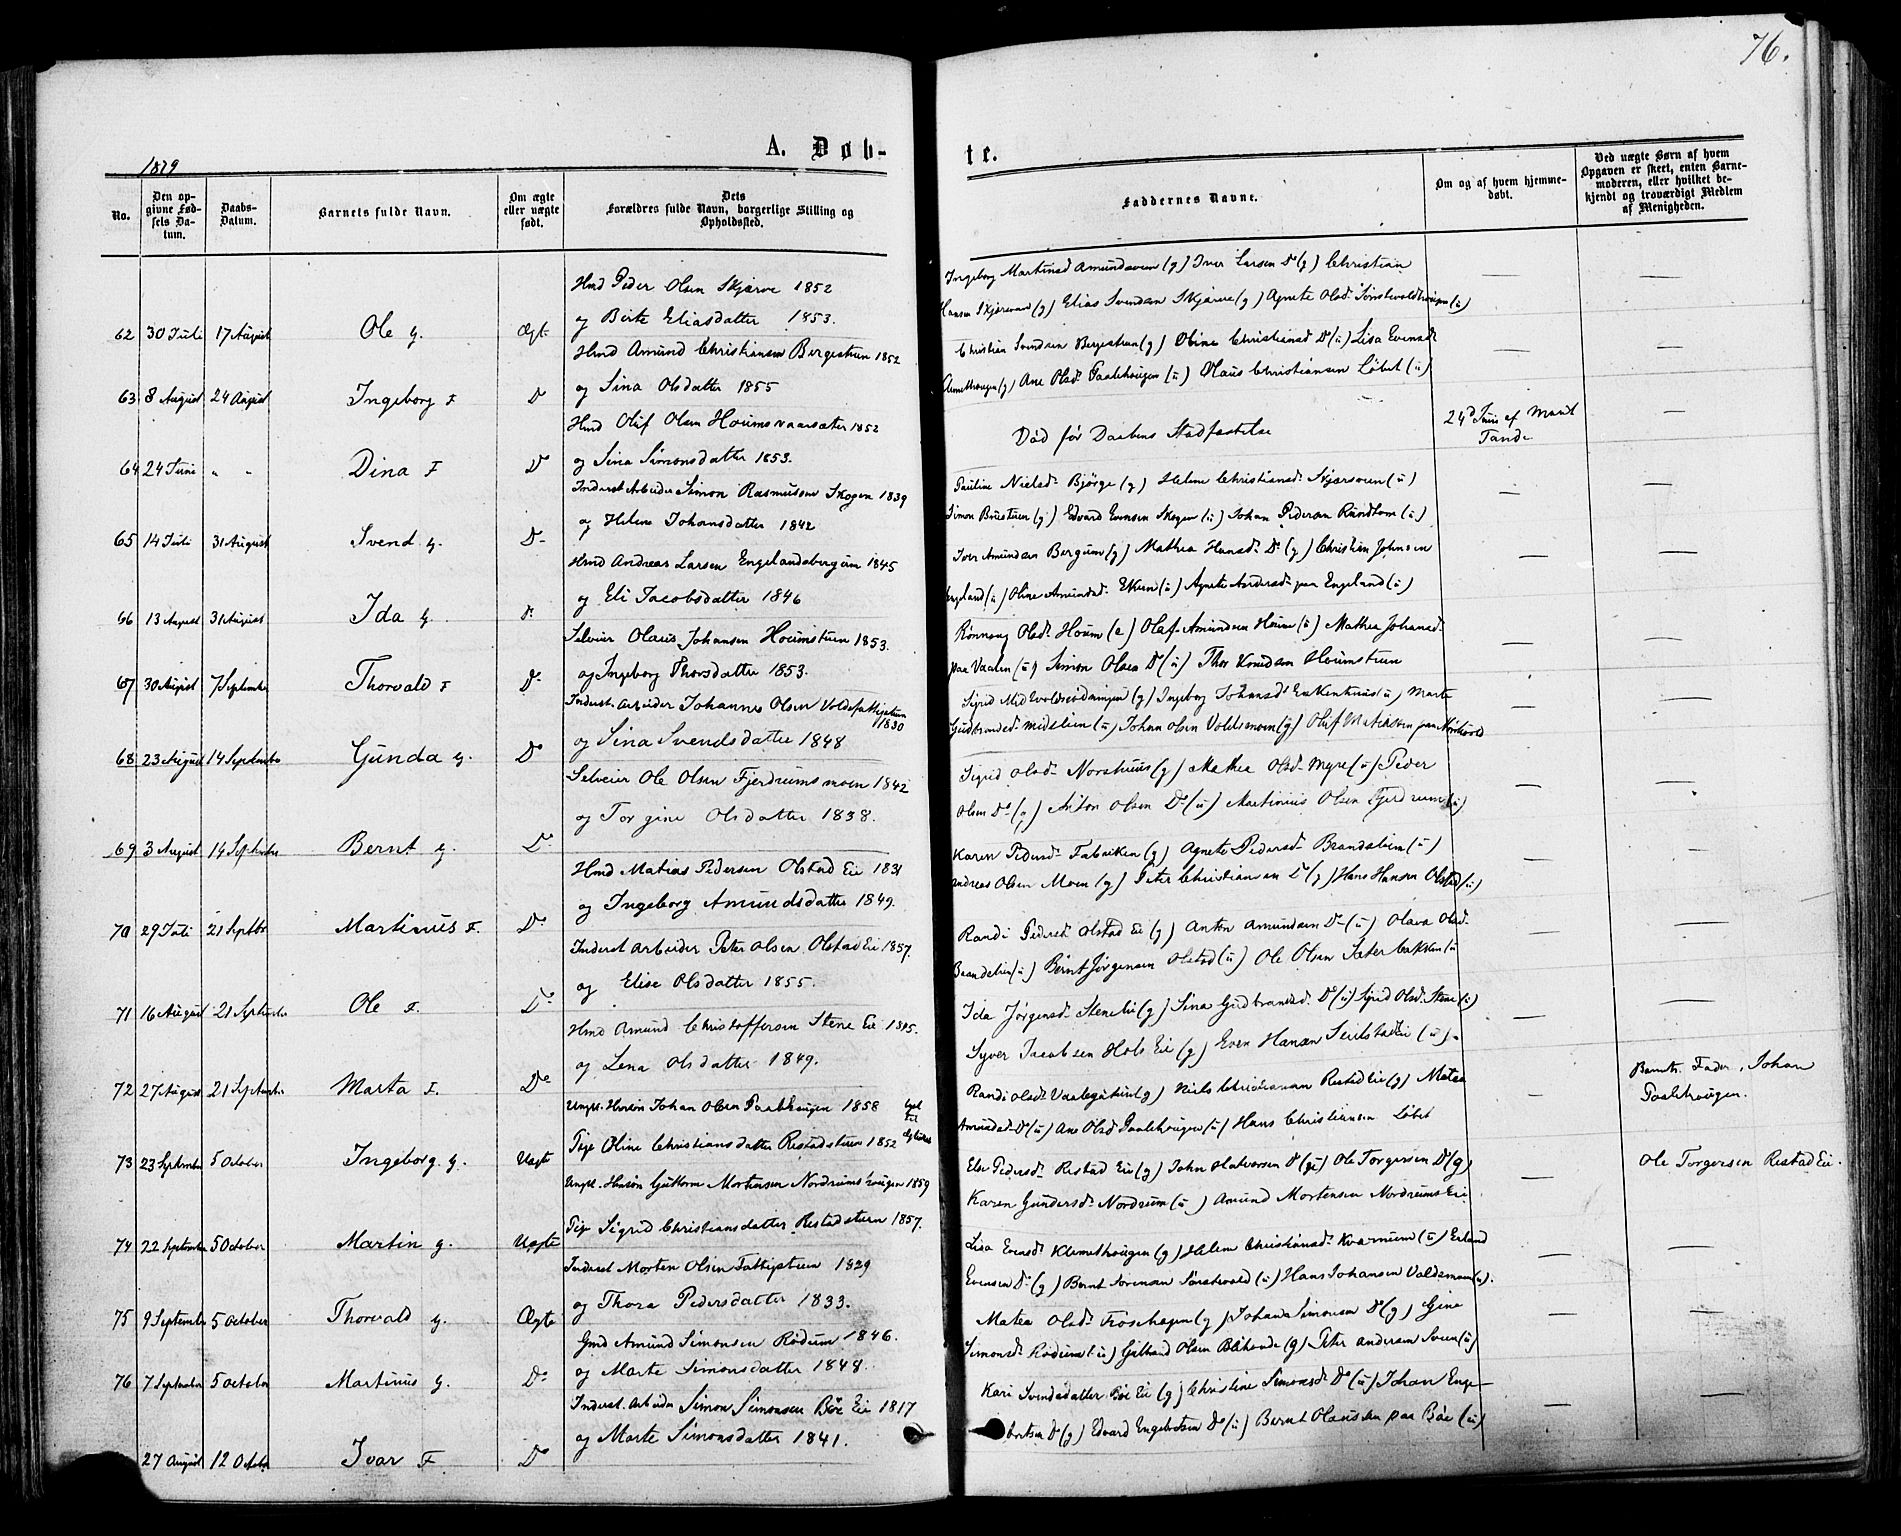 76.
A. Døb-
te.
1879
No.
Den op-
givne Fød-
sels Da-
tum.
Daabs-
Datum.
Barnets fulde Navn.
Om ægte
eller uægte
født.
Dets
Forældres fulde Navn, borgerlige Stilling og
Opholdssted.
Faddernes Navne.
Om og af hvem hjemme-
døbt.
Ved uægte Børn af hvem
Opgaven er skeet, enten Barne-
moderen, eller hvilket be-
kjendt og troværdigt Medlem
af Menigheden.
62 30 Juli 17 August Ole g. Ægte
Hmd Peder Olsen Skjærve 1852
og Birte Eliasdatter 1853.
Ingeborg Martinsd Amundsveen (g) Iver Larsen Do (g) Christian
Hansen (g) Elias Svendsen Skjærve (g) Agnete Olsd. (u)
63 8 August 24 August Ingeborg F Do
Hmd Amund Christiansen Bergestuen 1852
og Sina Olsdatter 1855
Christian Svendsen Bergestuen (g) Oline Christiansd. Do (u) Lisa Evensdr
(g) Ane Olsd. Paalehougen (u) Christiansen Løbet (u)
64 24 Juni " " Dina F Do
Hmd Oluf Olsen 1852
og Sina Simonsdatter 1853.
Død før Daabens Stadfæstelse
24d Juni af Marit
Tande
65 14 Juli 31 August Svend g. Do
Inderst Arbeider Simon Rasmussen Skogen 1839
og Helene Johansdatter 1842
Pauline Nielsd. Bjørge (g) Helene Christiansd. (u)
Simon (g) Edvard Evensen Skogen (u) Johan Pedersen (u)
66 13 August 31 August Ida g. Do
Hmd Andreas Larsen Engelandsbergum 1845
og Eli Jacobsdatter 1846
Iver Amundsen Bergum (g) Mathea Hansd. Do (g) Christian Johnsen
Engeland (u) Oline Amundsd. Ekern (u) Agnete Andersd. paa Engeland (u)
67 30 August 7 September Thorvald F Do
Selveier Olaus Johansen Houmstuen 1853.
og Ingeborg Thorsdatter 1853.
Rønnaug Olsd. Houm (e) Olaf Amundsen Houm (u) Mathea Johansd.
paa Vaalen (u) Simon Olsen Do (u) Thor Knudsen Houmstuen
68 23 August 14 September Gunda g. Do
Inderst. Arbeider Johannes Olsen
1830
og Sina Svendsdatter 1848
Sigrid (g) Ingeborg Johansd. (u) Marte
Gudbrandsd. Midtlien (u) Johan Olsen Voldsmoen (g) Oluf Mathisen paa
69 3 August 14 September Bernt g. Do
Selveier Ole Olsen Fjerdrumsmoen 1842
og Torgine Olsdatter 1838.
Sigrid Olsd. Norstuus (g) Mathea Olsd. Myre (u) Peder
Olsen Do (g) Anton Olsen Do (u) Martinius Olsen Fjerdrum (u)
70 29 Juli 21 Septbr Martinus F. Do
Hmd Matias Pedersen Olstad Eie 1831
og Ingeborg Amundsdatter 1849.
Karen Pedersd. Fabriken (g) Agnete Pedersd. Brandslien (u)
Andreas Olsen Moen (g) Peter Christiansen Do (g) Hans Hansen Olstad (u)
71 16 August 21 September Ole F. Do
Inderst Arbeider Peter Olsen Olstad Eie 1857.
og Elise Olsdatter 1855.
Randi Pedersd. Olstad Ei (g) Anton Amundsen Do (u) Olava Olsd.
(u) Bernt Jørgensen Olstad (u) Ole Olsen Sæterbakken (u)
72 27 August 21 September Marta F. Do
Hmd Amund Christoffersen Stene Eie 1845.
og Lena Olsdatter 1849.
Ida Jørgensd. (g) Sina Gudbrandsd. Do (u) Sigrid Olsd. Stene (u)
Syver Jacobsen Hols Eie (g) Even Hansen (u).
73 23 September 5 October Ingeborg. g. Uægte
Ungk. Johan Olsen Paalehougen 1858
Pige Oline Christiansdatter Restadstuen 1852
Randi Olsd. (g) Niels Christiansen Restad Eie (g) Matea
Amundsd. Do (u) Ane Olsd Paalehougen (u) Hans Christiansen Løbet
Barnets Fader, Johan
Paalehougen.
74 22 September 5 October Martin g. Uægte
Ungk. Guttorm Mortensen Nordrumshougen 1859
Pige Sigrid Christiansdatter Restadstuen 1857.
Else Pedersd. Restad Eie (g) John Halvorsen Do (g) Ole Torgersen Do (g)
Karen Gundersd. Nordrum (u) Amund Mortensen Nordrums Eie
Ole Torgersen Restad Eie.
75 9 September 5 October Thorvald g. Ægte
Inderst Morten Olsen 1829
og Thora Pedersdatter 1833.
Lisa Evensd. Klomethougen (g) Helene Christiansd. Kvarnum (u) Erland
Evensen Do (g) Bernt Sørensen (u) Hans Johansen Voldsmoen (u).
76 7 September 5 October Martinus g. Do
Gmd Amund Simonsen Rodum 1846.
og Marte Simonsdatter 1848.
Matea Olsd. Froshagen (g) Johanne Simonsen Do (g) Gina
Simonsd. Rodum (u) Olsen (g) Peter Andersen Sveen (u)
27 August 12 October Ivar F Do
Inderst. Arbeider Simon Simonsen Bøe Eie 1817
og Marte Simonsdatter 1841.
Kari Svendsdatter Bøe Eie (g) Christine Simonsd. Do (u) Johan Enge-
bretsen Do (g) Edvard Engebretsen Do (u) Bernt Olaussen paa Bøe (u)